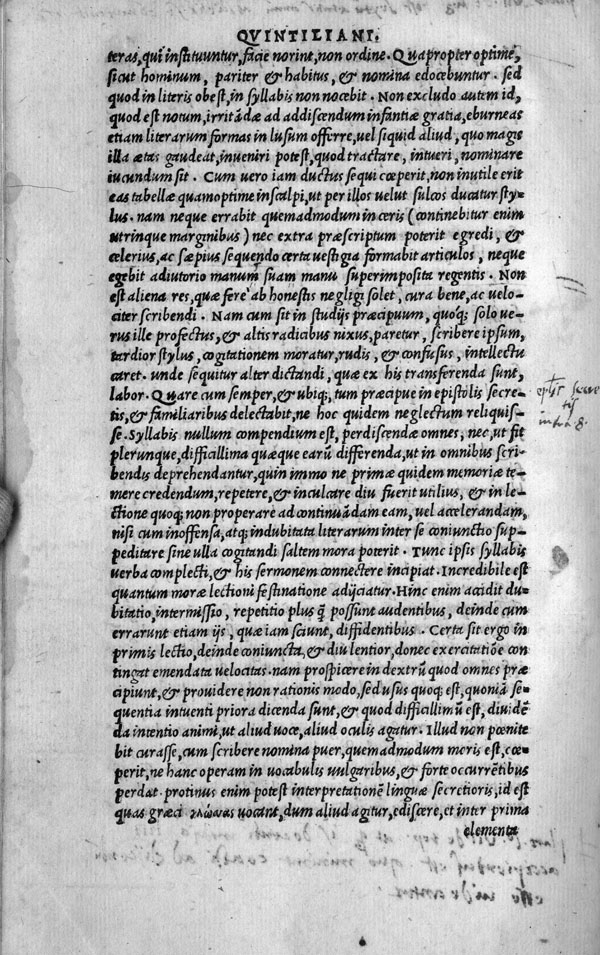 QVINTILIANI.
teras, qui instituuntur, facie norint, non ordine. Quapropter optime,
sicut hominum, pariter & habitus, & nomina edocebuntur. sed
quod in literis obest, in syllabis non nocebit. Non excludo autem id,
quod est notum, irritādæ ad addiscendum infantiæ gratia, eburneas
etiam literarum formas in lusum offerre, uel siquid aliud, quo magis
illa ætas gaudeat, inueniri potest, quod tractare, intueri, nominare
iucundum sit. Cum uero iam ductus sequi cœperit, non inutile erit
eas tabellæ quamoptime insculpi, ut per illos uelut sulcos ducatur sty-
lus. nam neque errabit quemadmodum in ceris (continebitur enim
utrinque marginibus) nec extra præscriptum poterit egredi, &
celerius, ac sæpius sequendo certa uestigia formabit articulos, neque
egebit adiutorio manum suam manu superimposita regentis. Non
est aliena res, quæ fere' ab honestis negligi solet, cura bene, ac uelo-
citer scribendi. Nam cum sit in studijs præcipuum, quoq; solo ue-
rus ille profectus, & altis radicibus nixus, paretur, scribere ipsum,
tardior stylus, cogitationem moratur, rudis, & confusus, intellectu
caret. unde sequitur alter dictandi, quæ ex his transferenda sunt,
labor. Quare cum semper, & ubiq;, tum præcipue in epistolis secre-
tis, & familiaribus delectabit, ne hoc quidem neglectum reliquis-
se. Syllabis nullum compendium est, perdiscendæ omnes, nec, ut fit
plerunque, difficillima quæque earū differenda, ut in omnibus scri-
bendis deprehendantur, quin immo ne primæ quidem memoriæ te-
mere credendum, repetere, & inculcare diu fuerit utilius, & in le-
ctione quoq; non properare ad continuādam eam, uel accelerandam,
nisi cum inoffensa, atq; indubitata literarum inter se coniunctio sup-
peditare sine ulla cogitandi saltem mora poterit. Tunc ipsis syllabis
uerba complecti, & his sermonem connectere incipiat. Incredibile est
quantum moræ lectioni festinatione adijciatur. Hinc enim accidit du-
bitatio, intermissio, repetitio plus q̃ possunt audentibus, deinde cum
errarunt etiam ijs, quæ iam sciunt, diffidentibus. Certa sit ergo in
primis lectio, deinde coniuncta, & diu lentior, donec exercitatiōe con
tingat emendata uelocitas. nam prospicere in dextrū quod omnes præ
cipiunt, & prouidere non rationis modo, sed usus quoq; est, quoniā se-
quentia intuenti priora dicenda sunt, & quod difficillimū est, diuidē
da intentio animi, ut aliud uoce, aliud oculis agatur. Illud non pœnite
bit curasse, cum scribere nomina puer, quemadmodum moris est, cœ-
perit, ne hanc operam in uocabulis uulgaribus, & forte occurrētibus
perdat. protinus enim potest interpretationē linguæ secretioris, id est
quas græci γλώσσας uocant, dum aliud agitur, ediscere, et inter prima
elementa